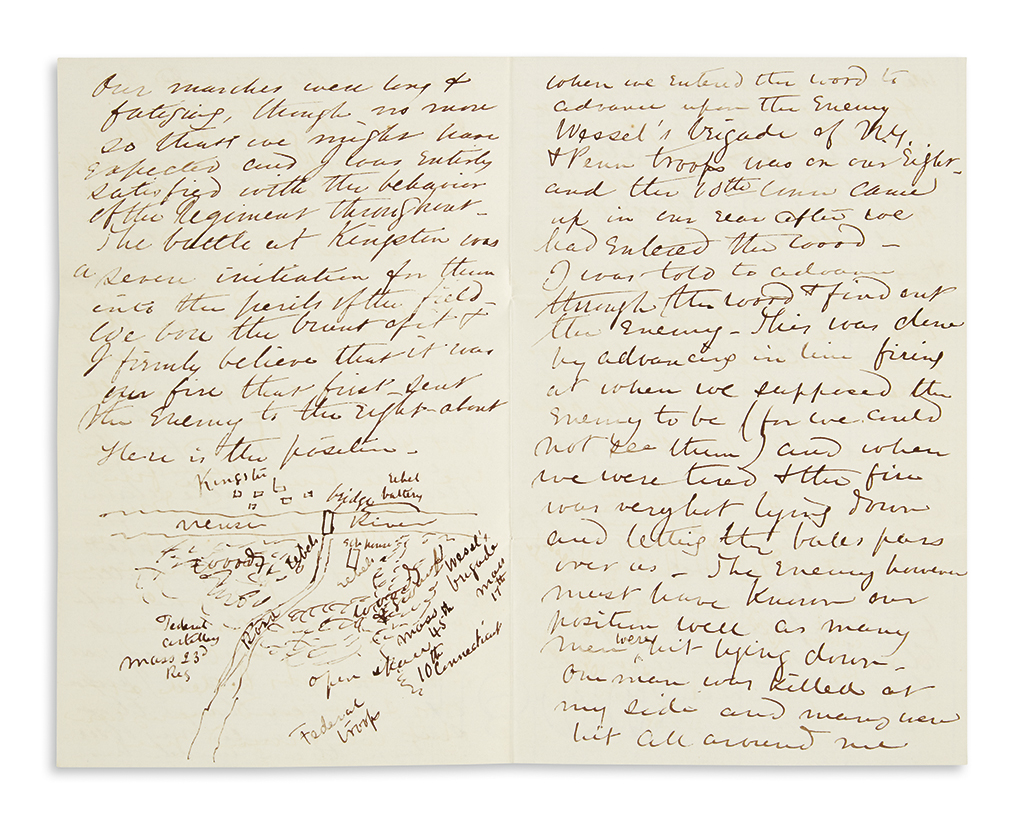 Our marches were long &
fatiging, though no more
so than we might have
expected and I was Entirely
satisfied with the behavior
of the Regiment throughout -
The battle at Kingston was
a severe initiation for them
into the perils of the field -
We bore the brunt of it &
I firmly believe that it was
our fire that first sent
the Enemy to the right-about
Here is the position -
Kingston
bridge
Rebel
battery
neuse River
woods
Rebels
rebels
Road
woods
swamp
Wessel's
brigade
Mass
17th
Mass
45th
10th
Connecticut
open space
Federal
artillery
Mass 23d
Reg
Federal
troops
when we Entered the wood to
advance upon the Enemy
Wessel's brigade of N.Y.
& Penn troops was on our Right -
and the 10th Conn came
up in our rear after we
had Entered the wood -
I was told to advance
through the wood & find out
the Enemy - This was done
by advancing in line firing
at when we supposed the
Enemy to be (for we could
not see them) and when
we were tired & the fire
was very hot lying down
and letting the balls pass
over us - The Enemy however
must have known our
position well as many
men were hit lying down -
One man was killed at
my side and many were
hit all around me